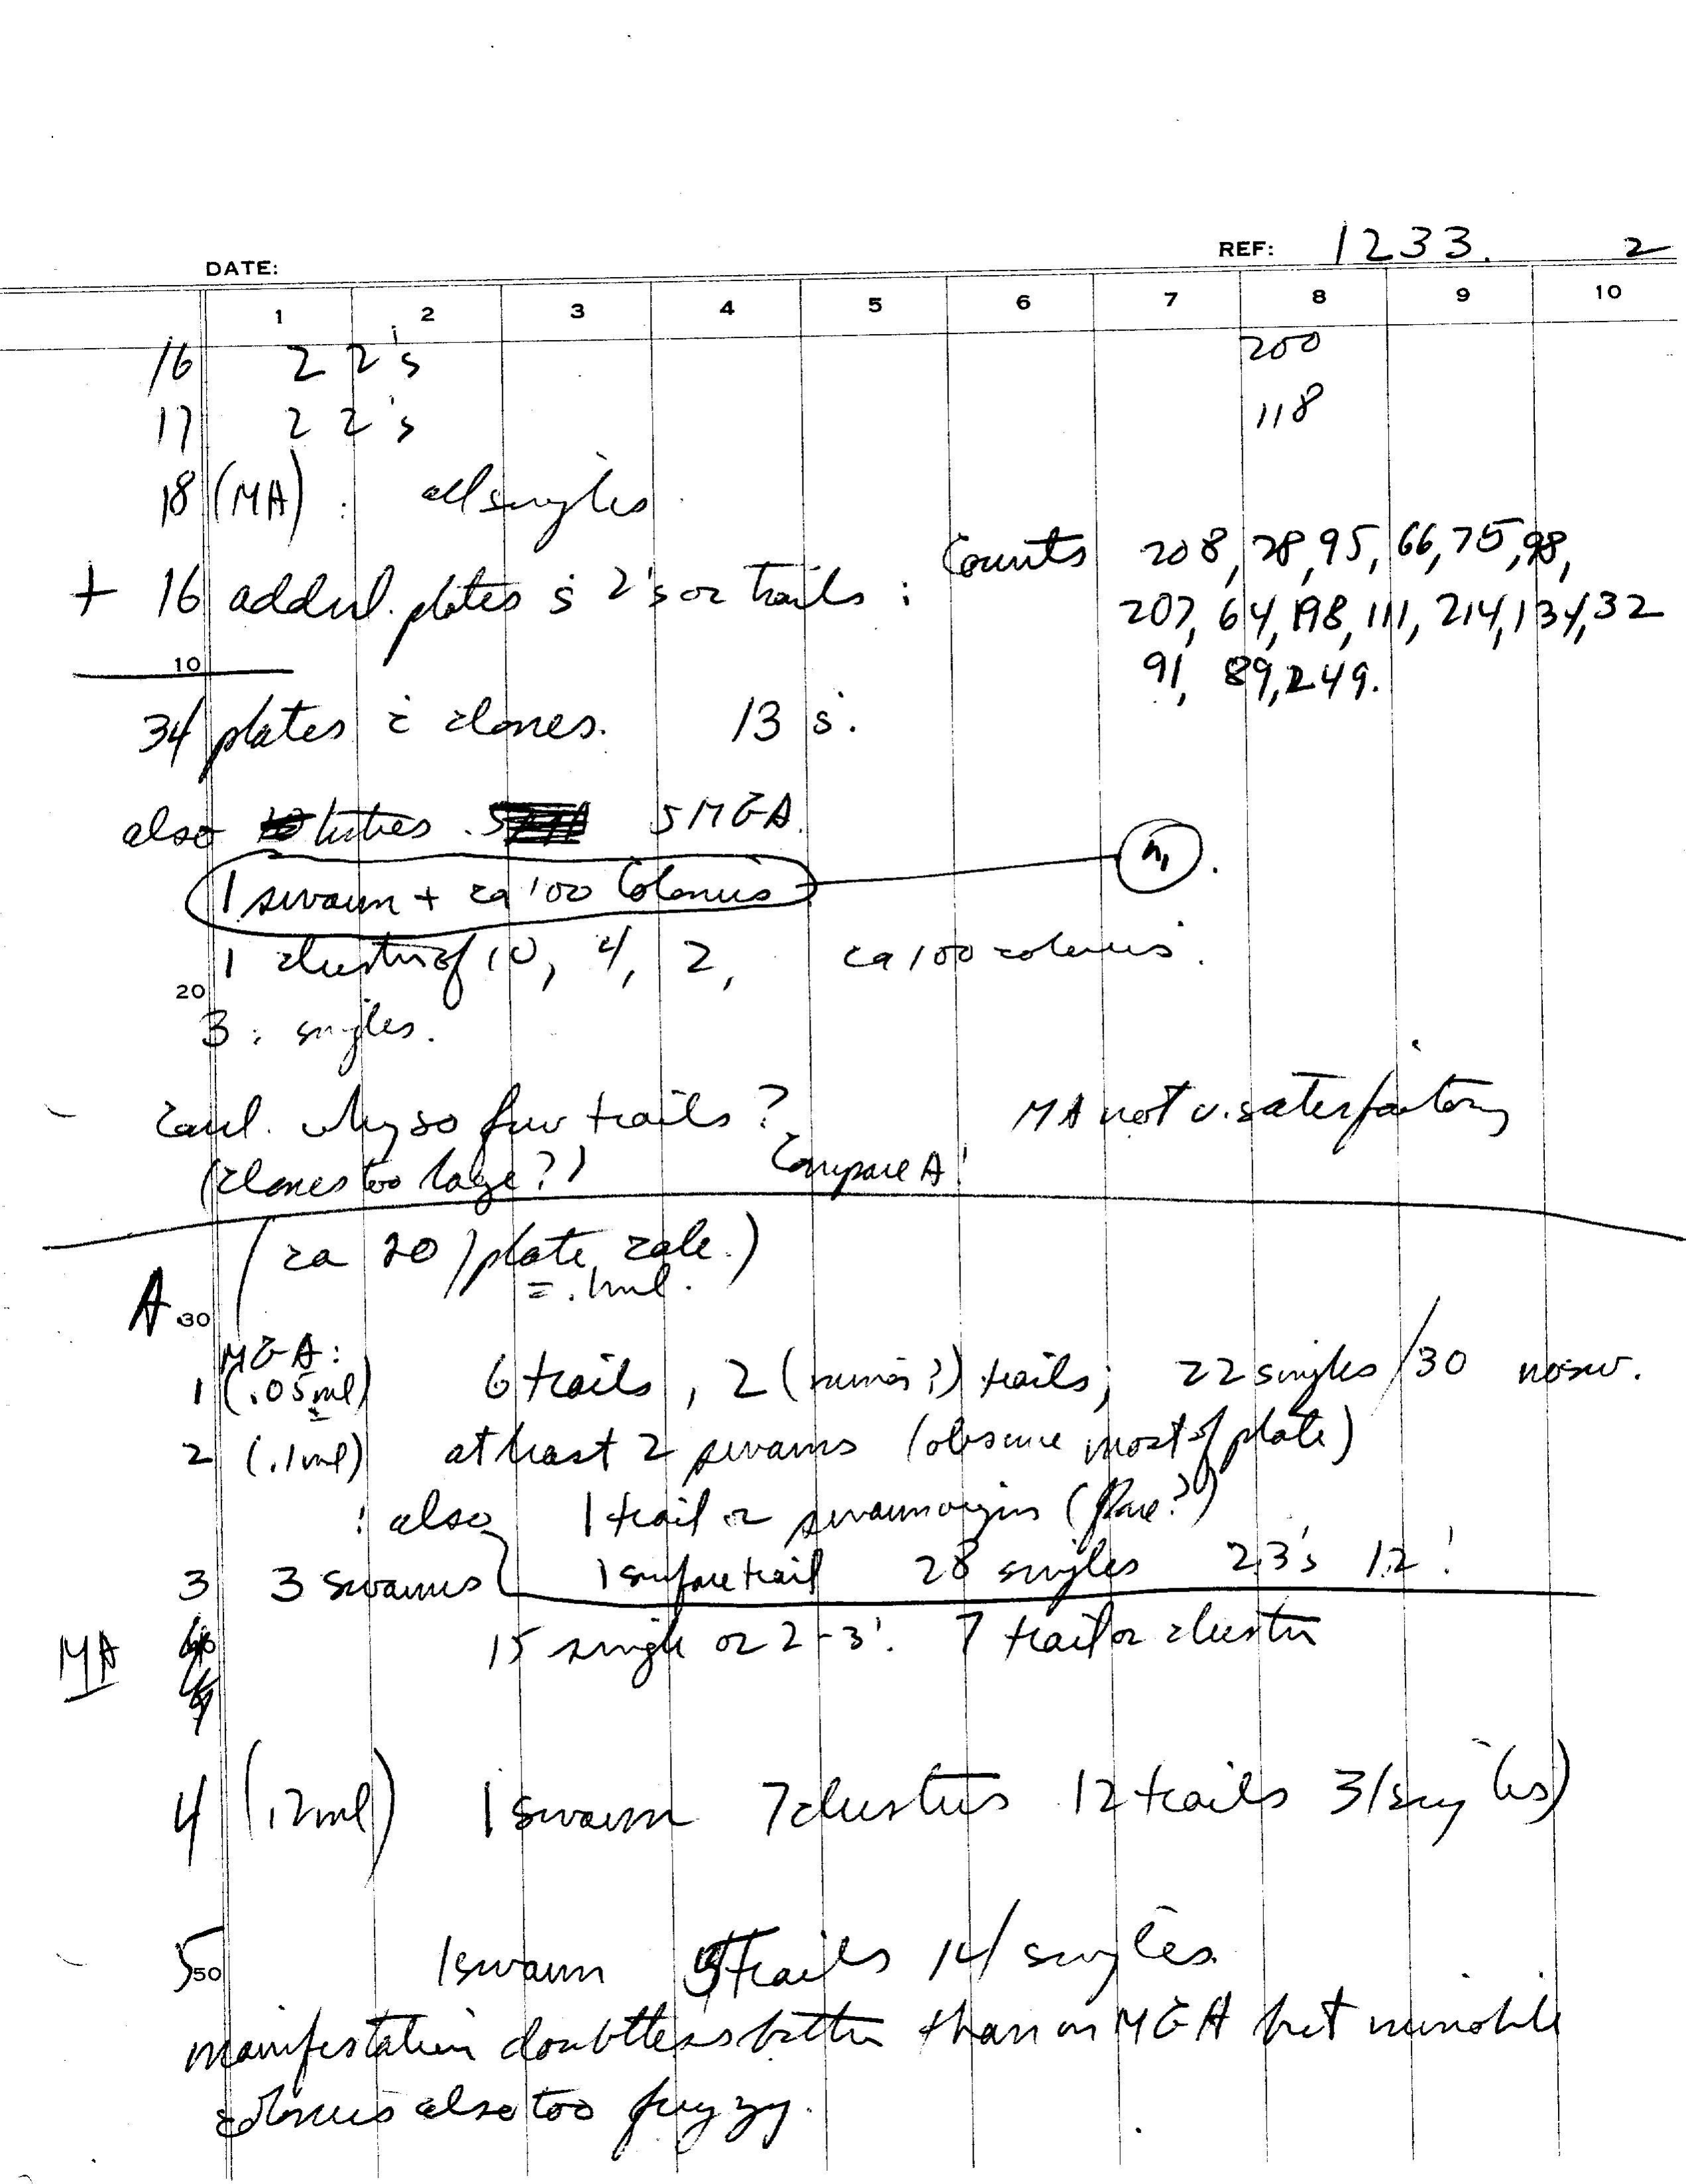 DATE: REF: 1233. 2
1 2 3 4 5 6 7 8 9 10
16 2 2's 200
17 2 2's 118
18 (MA) : all singles.
Counts 208, 28, 95, 66, 75, 98,
+ 16 addnl. plates s̄ 2's or trails : 207, 64, 198, 111, 214, 134, 32
10 91, 89, 249.
34 plates c̄ clones. 13 s̄.
also 5 MGA.
1 swarm + ca 100 Colonies
1 cluster of 10, 4, 2, ca 100 colonies.
20
3 : singles.
why so few trails? MA not v. satisfactory
(clones too large?) Compare A!
(ca 20 / plate calc.)
= .1ml.
A. 30
MGA:
1 (.05 ml) 6 trails, 2 (minor?) trails; 22 singles / 30 no sw.
2 (.1ml) at least 2 swarms (obscure most of plate)
: also 1 trail or swarm origin (flare?)
3 3 swarms 1 surface trail 28 singles 2 3's 1 2!
MA 15 single or 2-3'. 7 trail or cluster
4 (.2ml) 1 swarm 7 clusters 12 trails 31 singles)
5 50 1 swarm trails 14 singles.
manifestation doubtless better than on MGA but
colonies also too fuzzy.